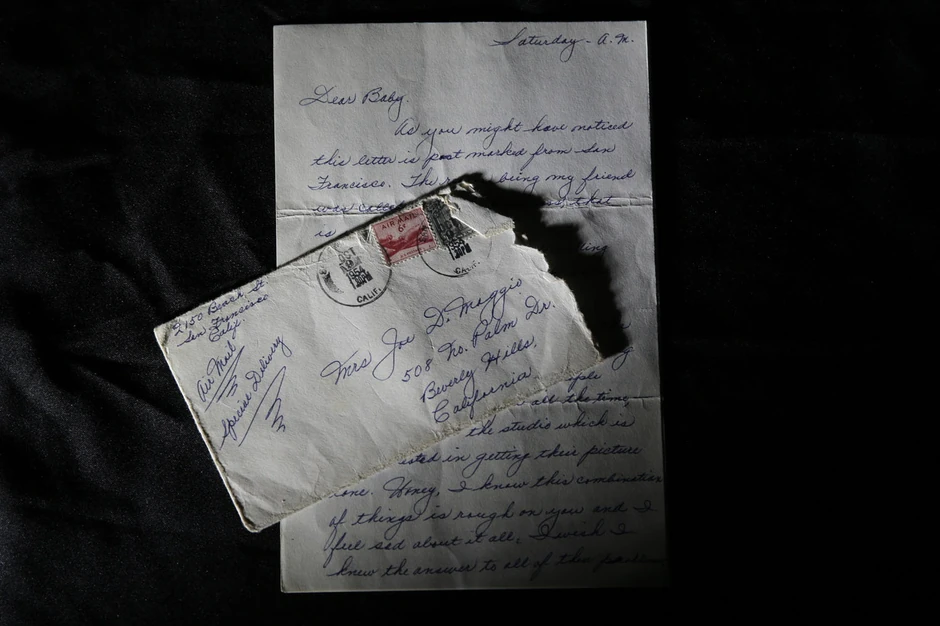 Saturday - A.M.
Dear Baby,
As you might have noticed
this letter is post marked from San
Francisco. The being my friend
was called that
is
AIR MAIL
6¢
OCT
1954
CALIF.
1954
CALIF.
2150 Beach St.
San Francisco
Calif.
Air Mail
Special Delivery
Mrs Joe D. Maggio
508 No. Palm Dr.
Beverly Hills,
California
all the time,
the studio which is
in getting their picture
Honey, I know this combination
of things is rough on you and I
feel sad about it all, I wish I
knew the answer to all of this